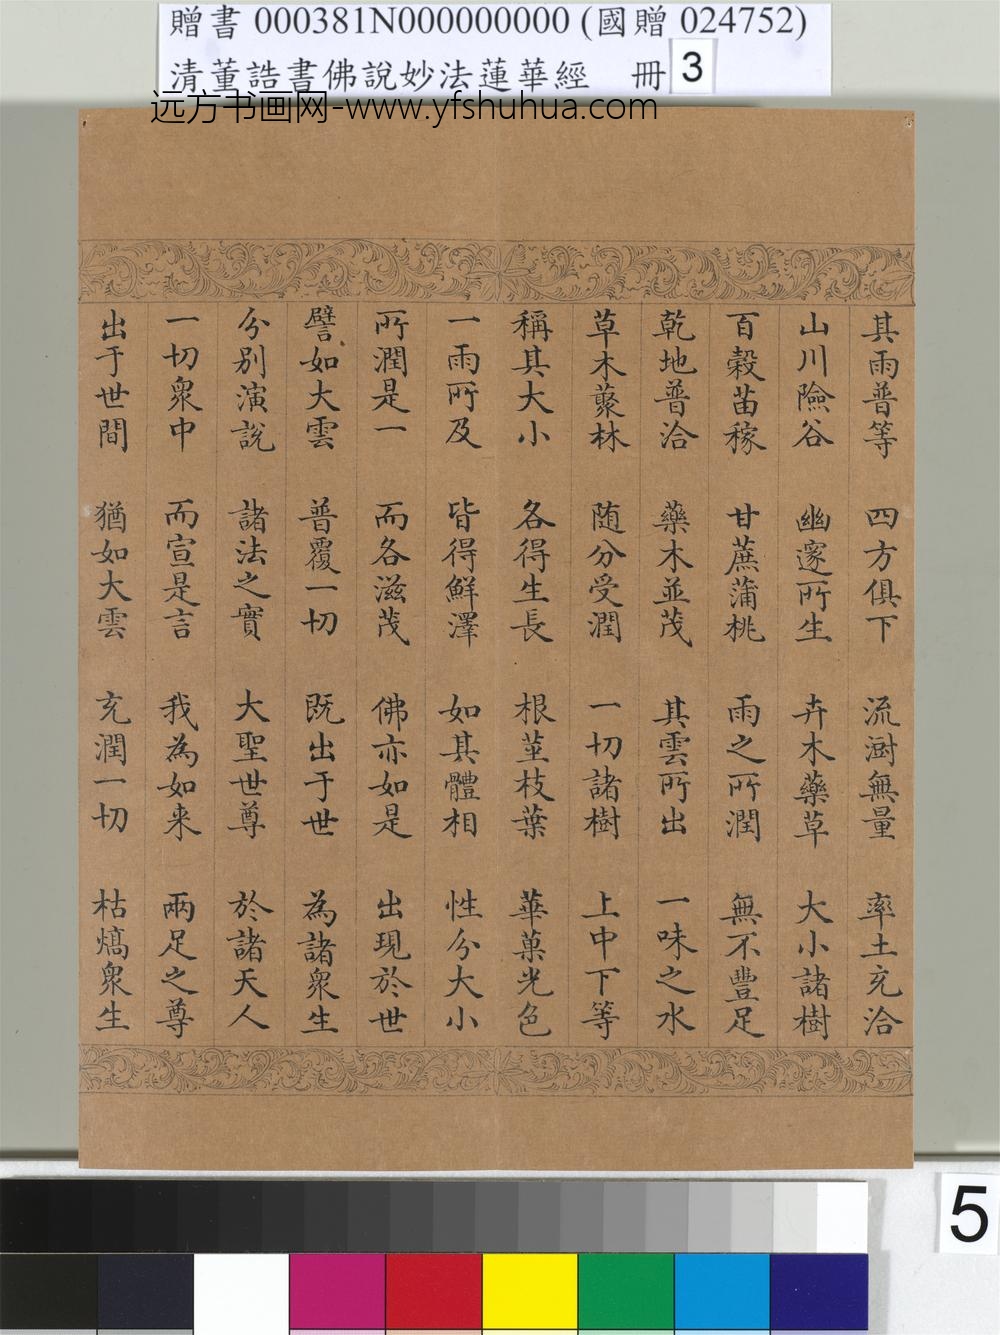 贈書 000381N000000000 (國贈 024752)
清董誥書佛說妙法蓮華經 冊 3
远方书画网-www.yfshuhua.com
其雨普等 四方俱下 流澍無量 率土充洽
山川險谷 幽邃所生 卉木藥草 大小諸樹
百穀苗稼 甘蔗蒲桃 雨之所潤 無不豐足
乾地普洽 藥木並茂 其雲所出 一味之水
草木藂林 随分受潤 一切諸樹 上中下等
稱其大小 各得生長 根莖枝葉 華菓光色
一雨所及 皆得鮮澤 如其體相 性分大小
所潤是一 而各滋茂 佛亦如是 出現於世
譬如大雲 普覆一切 既出于世 為諸衆生
分別演說 諸法之實 大聖世尊 於諸天人
一切衆中 而宣是言 我為如来 兩足之尊
出于世間 猶如大雲 充潤一切 枯熇衆生
5